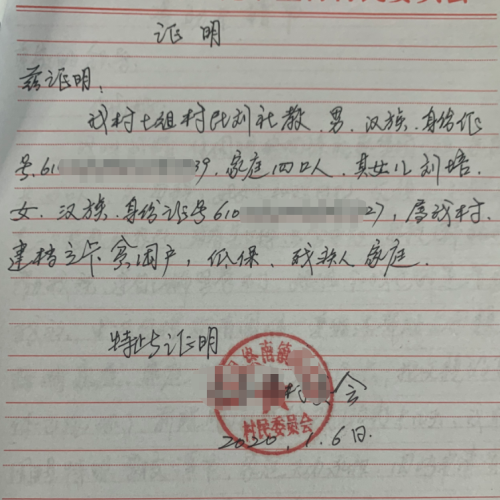 证明
兹证明:
我村七组村民刘社教.男.汉族.身份证
号.610 39.家庭四口人.其女儿刘培.
女.汉族.身份证号610 27,属我村.
建档立卡贫困户,低保、残疾人家庭.
特此与证明
终南镇
会
村民委员会
2020.1.6日.